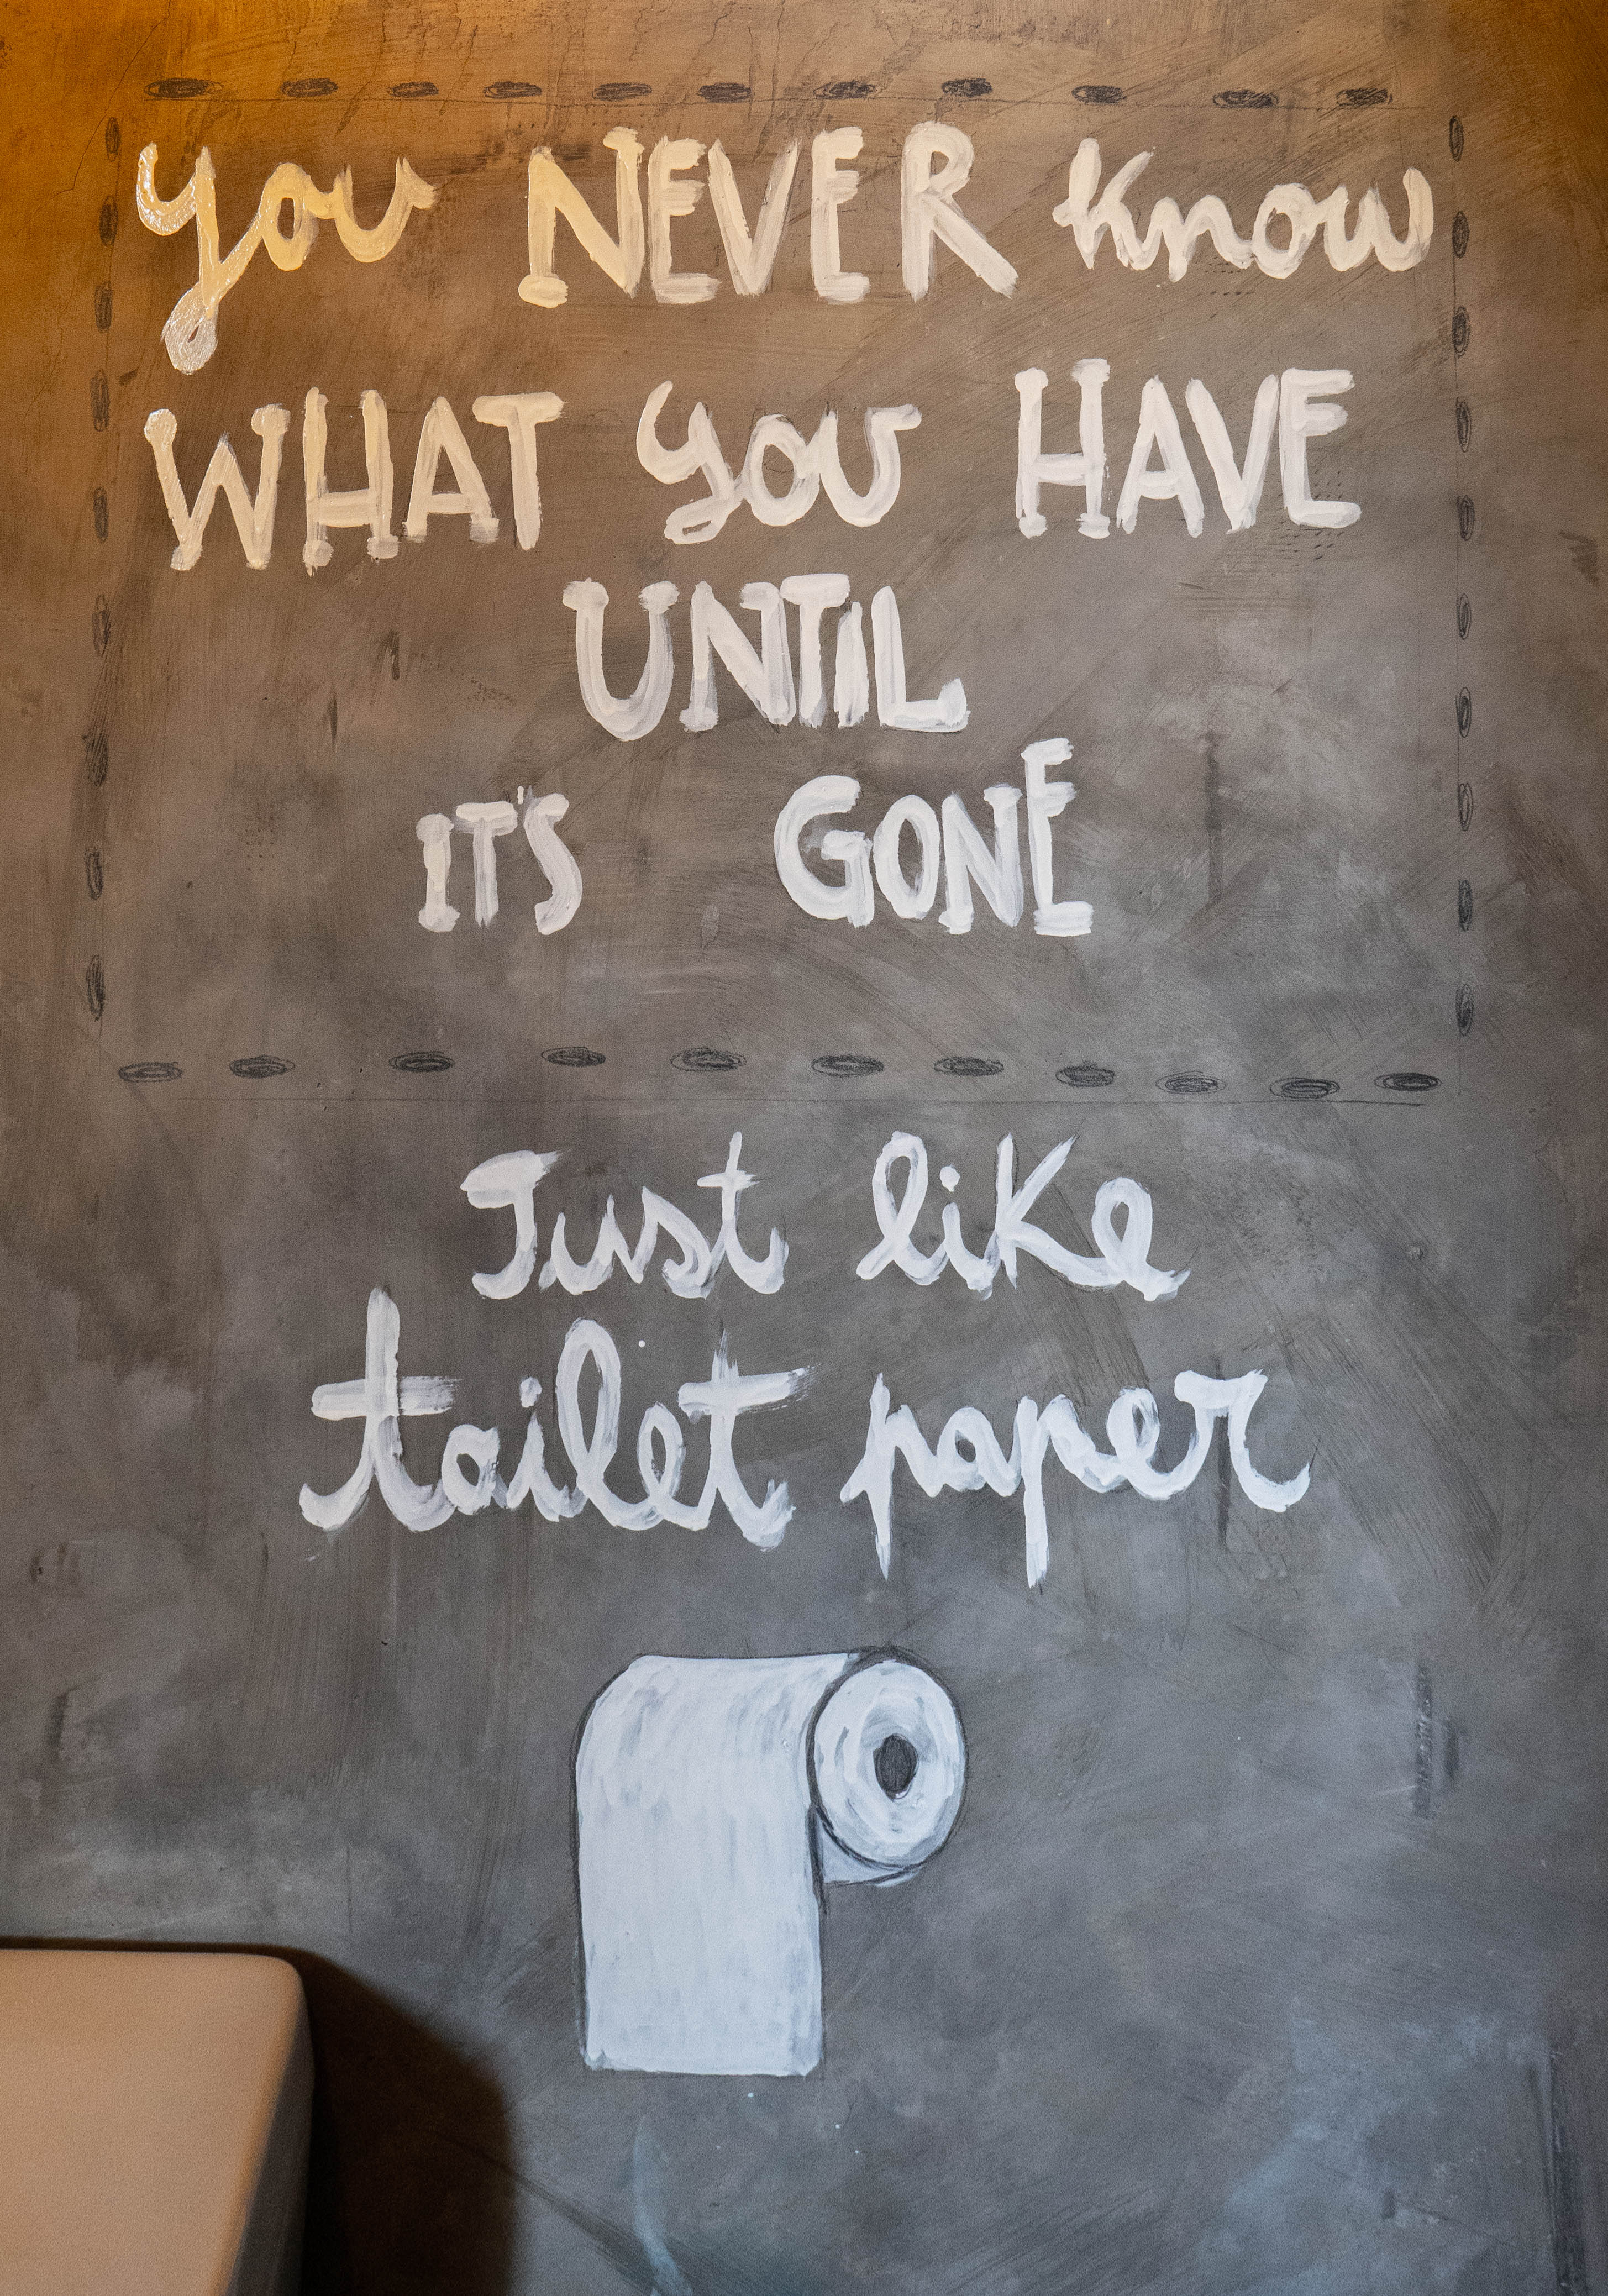 you NEVER know
WHAT you HAVE
UNTIL
IT'S GONE
Just like
toilet paper